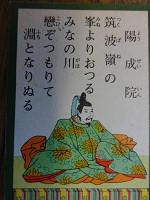 陽成院
筑波嶺の
峯よりおつる
みなの川
戀ぞつもりて
淵となりぬる